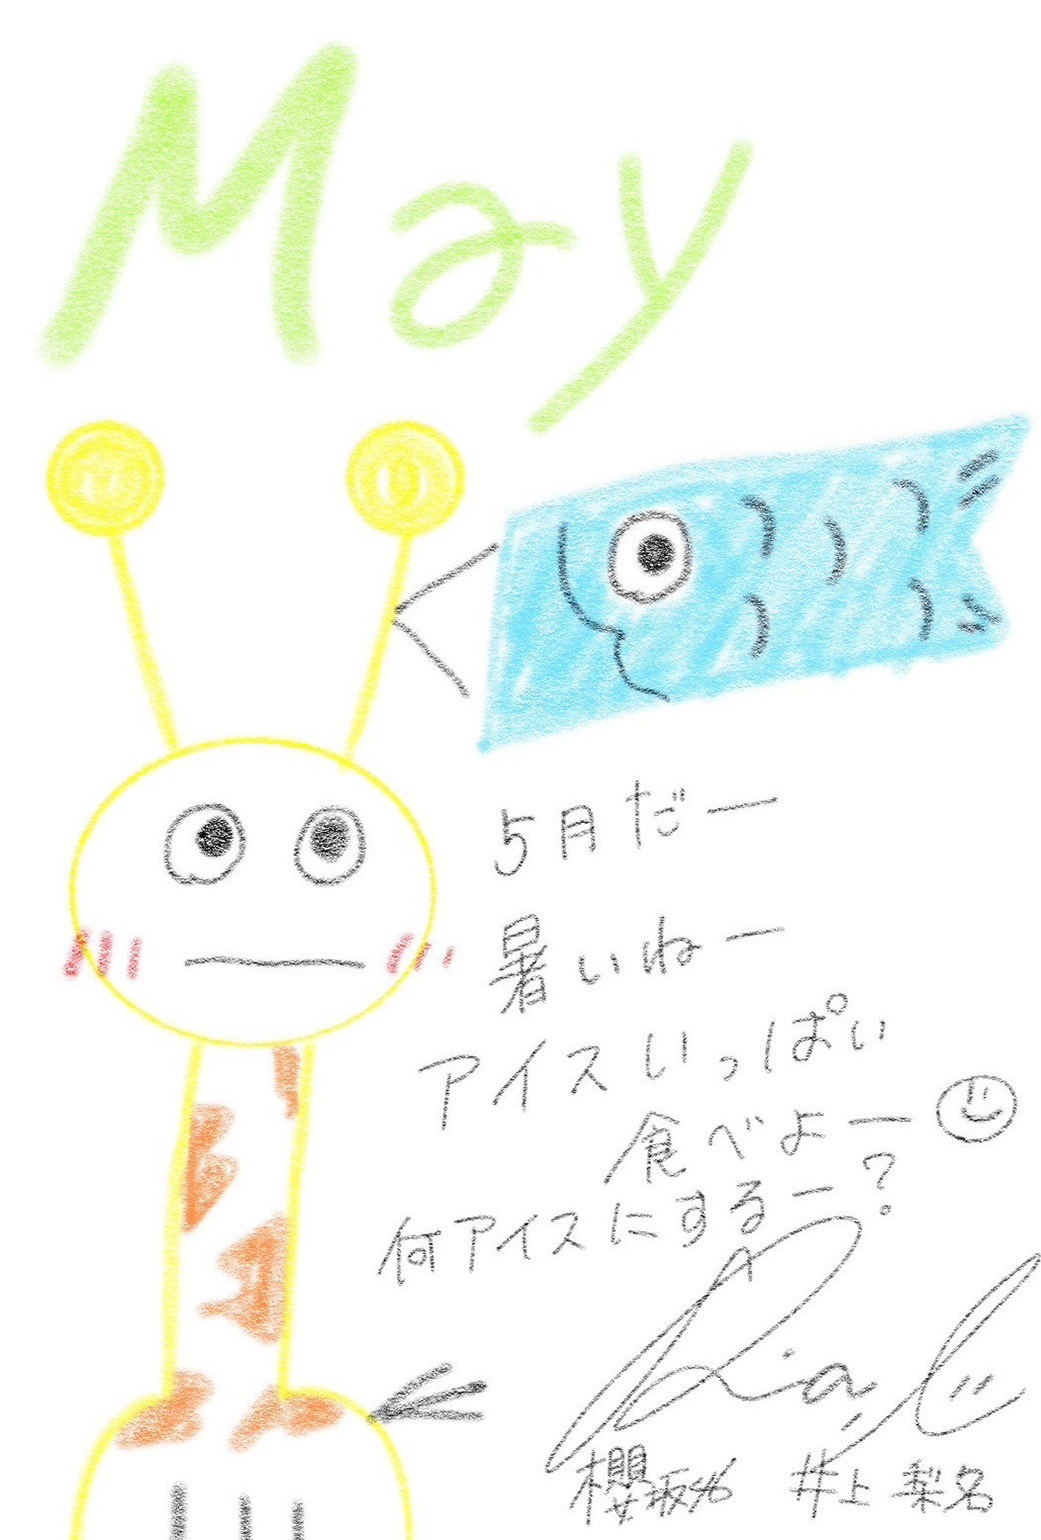 May
5月だー
暑いねー
アイスいっぱい
食べよー
何アイスにするー?
Rina
櫻坂46 井上 梨名